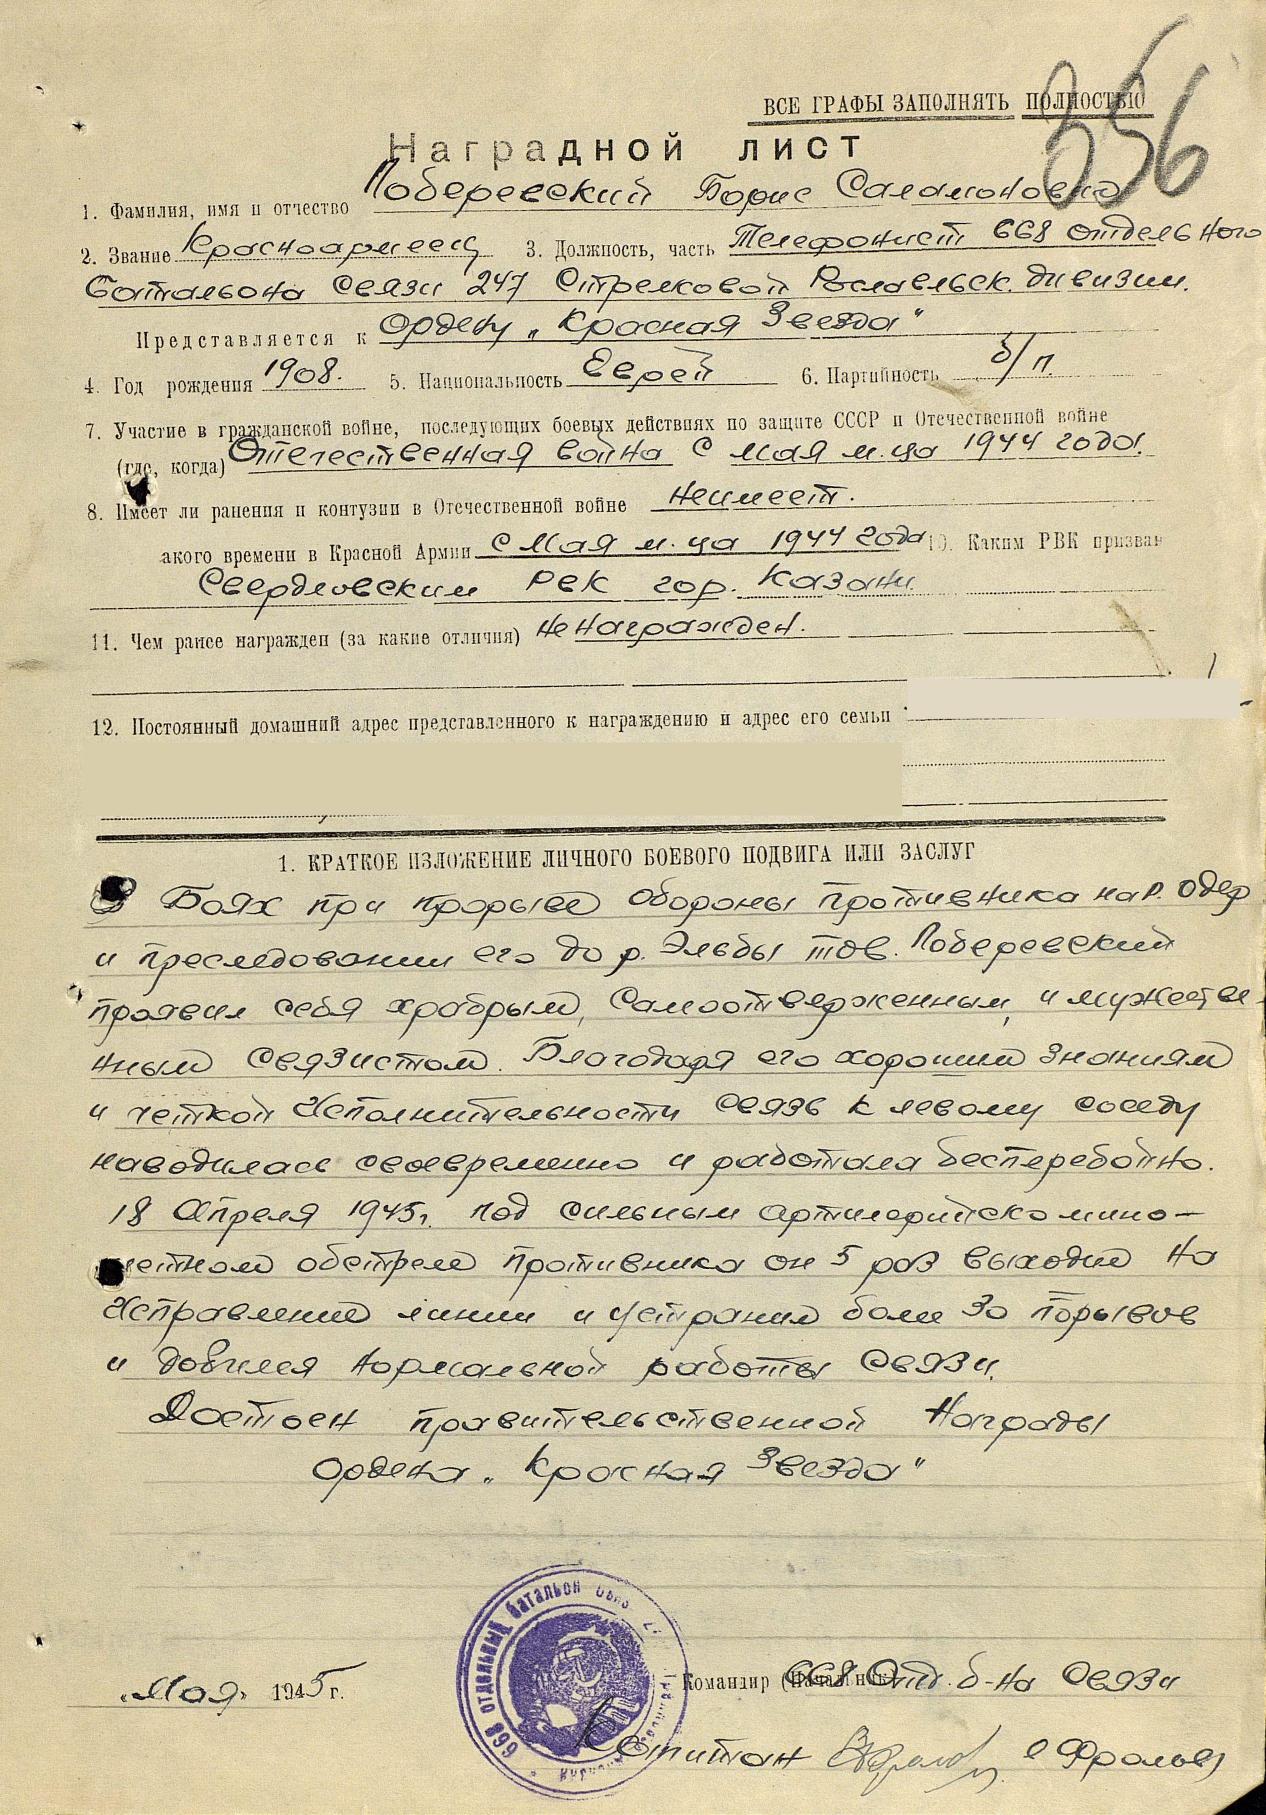 356
ВСЕ ГРАФЫ ЗАПОЛНЯТЬ ПОЛНОСТЬЮ
Наградной лист
1. Фамилия, имя и отчество Поберевский Борис Саламонович
2. Звание Красноармеец 3. Должность, часть Телефонист 668 отдельного
батальона связи 247 Стрелковой Рославльск. дивизии.
Представляется к ордену „Красная Звезда"
4. Год рождения 1908. 5. Национальность Еврей 6. Партийность б/п.
7. Участие в гражданской войне, последующих боевых действиях по защите СССР и Отечественной войне
(где, когда) Отечественная война с мая м-ца 1944 года.
8. Имеет ли ранения и контузии в Отечественной войне неимеет.
акого времени в Красной Армии с мая м-ца 1944 года 10. Каким РВК призван
Свердловским РВК гор. Казани.
11. Чем ранее награжден (за какие отличия) не награжден.
12. Постоянный домашний адрес представленного к награждению и адрес его семьи
1. КРАТКОЕ ИЗЛОЖЕНИЕ ЛИЧНОГО БОЕВОГО ПОДВИГА ИЛИ ЗАСЛУГ
В Боях при прорыве обороны противника на р. Одер
и преследовании его до р. Эльбы тов. Поберевский
проявил себя храбрым, самоотверженным, и мужестве-
нным связистом. Благодаря его хорошим знаниям
и четкой исполнительности связь к левому соседу
наводилась своевременно и работала бесперебойно.
18 Апреля 1945г. под сильным артилерийско мино-
метном обстрелом противника он 5 раз выходил на
исправление линии и устранил боле 30 порывов
и добился нормальной работы связи.
Достоен правительственной Награды
ордена „Красная Звезда"
668 отдельный батальон связ
„Мая" 1945 г.
Командир (Начальник) 668 Отд. б-на связи
Капитан /Фролов/